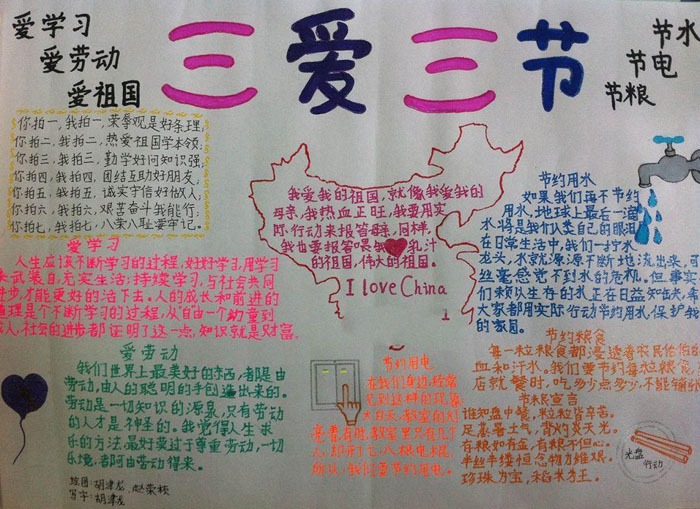 爱学习
爱劳动
爱祖国
三爱三节
节水
节电
节粮
你拍一,我拍一,荣辱观是好条理,
你拍二,我拍二,热爱祖国学本领,
你拍三,我拍三,勤学好问知识强,
你拍四,我拍四,团结互助好朋友,
你拍五,我拍五,诚实守信好做人,
你拍六,我拍六,艰苦奋斗我能行,
你拍七,我拍七,八荣八耻要牢记。
爱学习
人生应该不断学习的过程,好好学习,用学习
来武装自,充实生活;持续学习,与社会共同
进步,才能更好的活下去。人的成长和前进的
道理是个不断学习的过程,从自由一个幼童到
人,社会的进步都证明了这一点,知识就是财富。
爱劳动
我们世界上最美好的东西,都是由
劳动,由人的聪明的手创造出来的。
劳动是一切知识的源泉,只有劳动
的人才是神圣的。我觉得人生求
乐的方法,最好莫过于尊重劳动,一切
乐境,都阿由劳动得来。
绘图:胡津龙,赵荣祯
写字:胡津龙
我爱我的祖国,就像我爱我的
母亲,我热血正旺,我要用实
际行动来报答母亲,同样,
我也要报答 乳汁
的祖国,伟大的祖国。
I love China
节约用电
在我们身边,经常
见到这样的现象
大白天,教室的灯
亮着 教室里只有几个
人,却开七八根电棍,
所以,我们要节约用电。
节约用水
如果我们再不节约
用水,地球上最后一滴
水将是我们人类自己的眼泪
在日常生活中,我们一拧水
龙头,水就源源不断地流出来,可
丝毫感觉不到水的危机。但事实
们赖以生存的水正在日益
大家都用实际行动节约用水,保护我
的家园。
节约粮食
每一粒粮食都浸透着农民伯伯
血和汗水,我们要节约每粒粮食,
店就餐时,吃多少点多少,不能铺张
节粮宣言
谁知盘中餐,粒粒皆辛苦。
足蒸暑土气,背灼炎天光。
存粮如存金,有粮不担心。
半丝半缕恒念物力维艰。
珍珠为宝,稻米为王。
光盘
行动